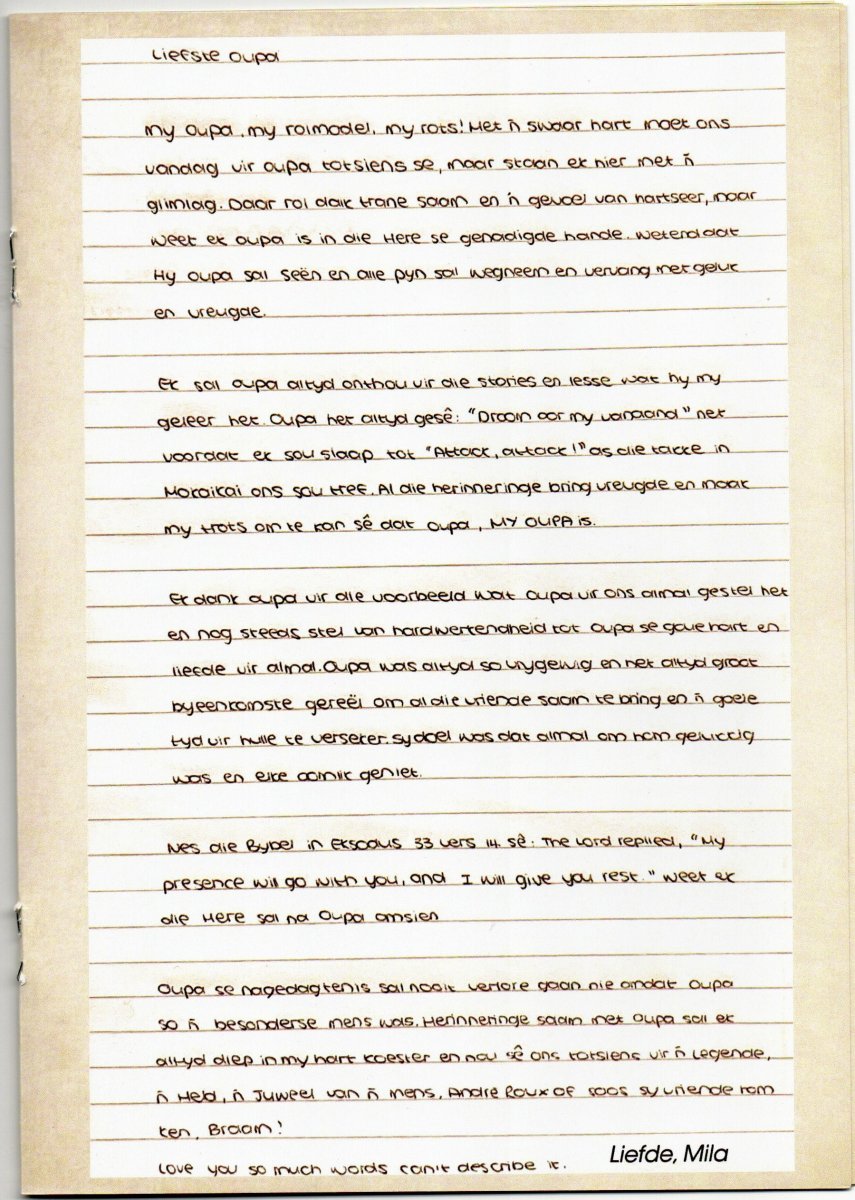 Liefste Oupa
My Oupa, my rolmodel, my rots! Met 'n swaar hart moet ons
vandag vir oupa totsiens se, maar staan ek hier met 'n
glimlag. Daar rol dalk trane saam en 'n gevoel van hartseer, maar
weet ek oupa is in die Here se genadigde hande. Wetend dat
Hy Oupa sal seën en alle pyn sal wegneem en vervang met geluk
en vreugde.
Ek sal oupa altyd onthou vir die stories en lesse wat hy my
geleer het. Oupa het altyd gesê: "Droom oor my vanaand" net
voordat ek sou slaap tot "Attack, attack!" as die takke in
Mokaikai ons sou tref. Al die herinneringe bring vreugde en maak
my trots om te kan sê dat oupa, MY OUPA is.
Ek dank oupa vir die voorbeeld wat Oupa vir ons almal gestel het
en nog steeds stel van hardwerkendheid tot Oupa se goue hart en
liefde vir almal. Oupa was altyd so vrygewig en het altyd groot
byeenkomste gereël om al die vriende saam te bring en 'n goeie
tyd vir hulle te verseker. Sy doel was dat almal om hom gelukkig
was en elke oomlik geniet.
Nes die Bybel in Eksodus 33 vers 14 sê: The Lord replied, "My
presence will go with you, and I will give you rest." Weet ek
die Here sal na Oupa omsien
Oupa se nagedagtenis sal nooit verlore gaan nie omdat Oupa
so 'n besonderse mens was. Herinneringe saam met Oupa sal ek
altyd diep in my hart koester en nou sê ons totsiens vir 'n Legende,
'n Held, 'n Juweel van 'n mens, André Roux of soos sy vriende hom
ken, Braam!
Love you so much words can't describe it.
Liefde, Mila